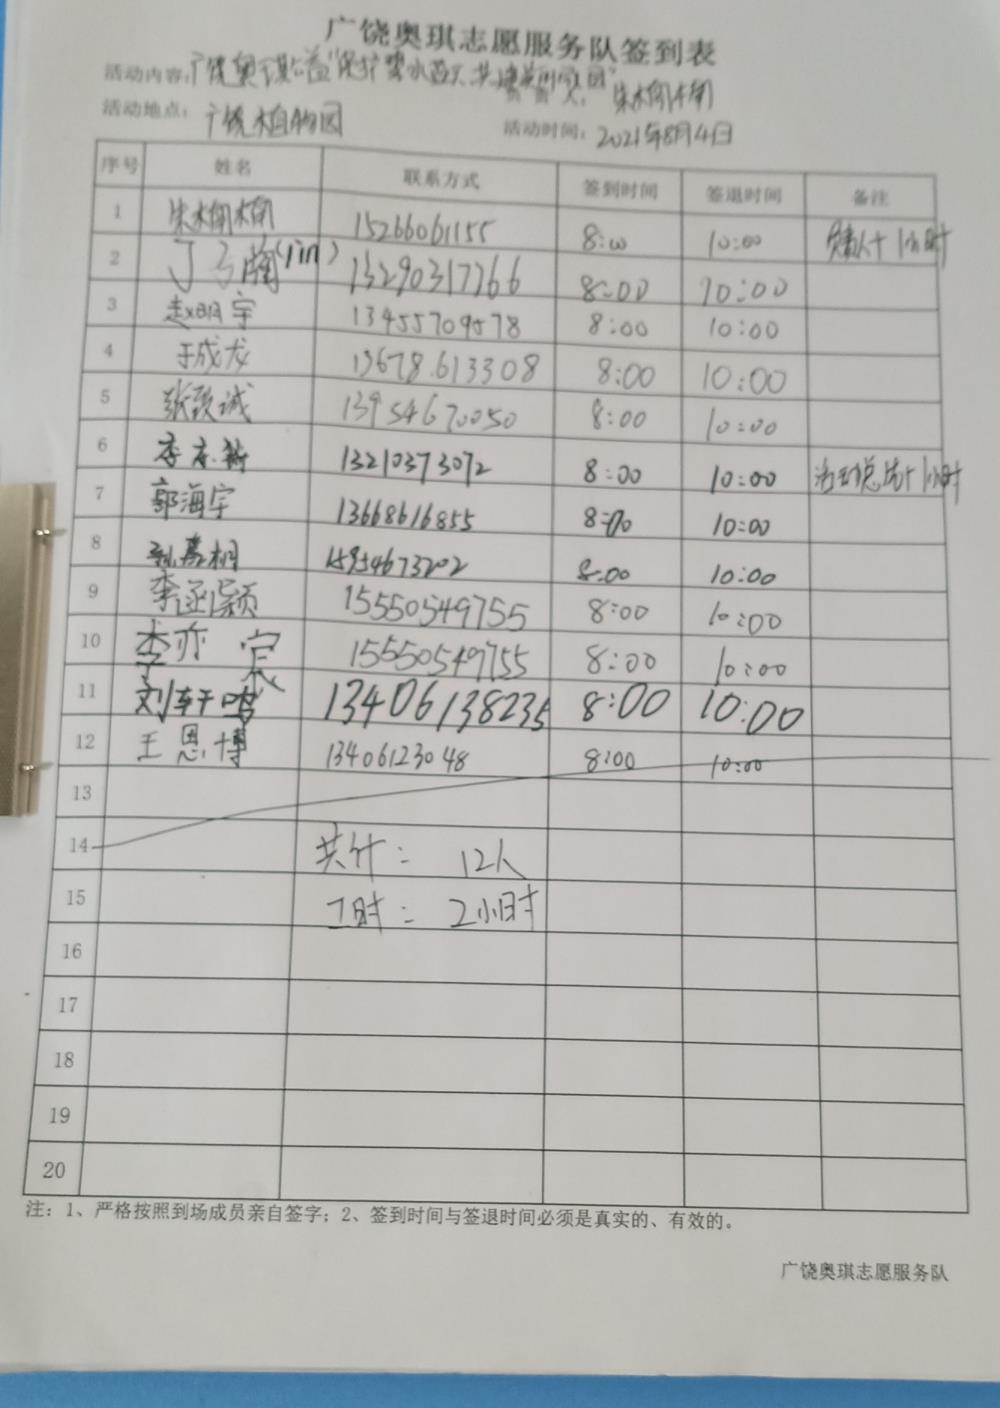 广饶奥琪志愿服务队签到表
活动内容：广饶奥琪公益"保护碧水蓝天 共建美丽家园"
负责人：朱楠楠
活动地点：广饶植物园 活动时间：2021年8月4日
序号 姓名 联系方式 签到时间 签退时间 备注
1 朱楠楠 15266061155 8:00 10:00 负责人+1小时
2 丁子瀚(lin) 13290317766 8:00 10:00
3 赵明宇 13455709578 8:00 10:00
4 于成龙 13678613308 8:00 10:00
5 张致诚 13954670050 8:00 10:00
6 李 13210373072 8:00 10:00 活动总结+1小时
7 郭海宇 13668616855 8:00 10:00
8 孙嘉桐 15954673202 8:00 10:00
9 李函颖 15550549755 8:00 10:00
10 李亦宸 15550549755 8:00 10:00
11 刘轩鸣 13406138235 8:00 10:00
12 王恩博 13406123048 8:00 10:00
13
14 共计： 12人
15 工时： 2小时
16
17
18
19
20
注：1、严格按照到场成员亲自签字；2、签到时间与签退时间必须是真实的、有效的。
广饶奥琪志愿服务队